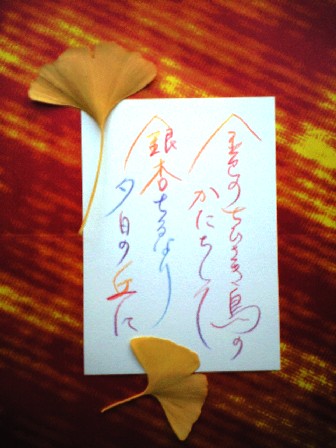 金色のちひさき鳥の
かたちして
銀杏ちるなり
夕日の丘に